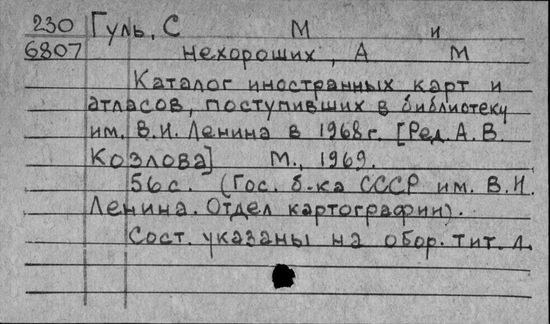 230 Гуль, С М и
6807 нехороших, А М
Каталог иностранных карт и
атласов, поступивших в библиотеку
им. В.И. Ленина в 1968 г. [Ред. А.В.
Козлова] М., 1969.
56 с. (Гос. б-ка СССР им. В.И.
Ленина. Отдел картографии).
Сост. указаны на обор. тит. л.